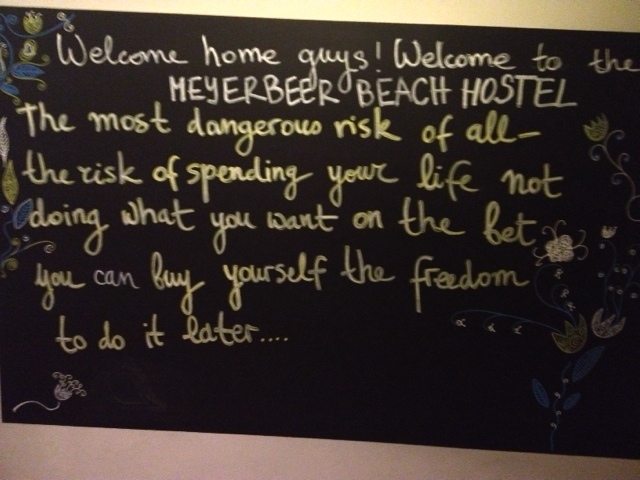 Welcome home guys! Welcome to the
MEYERBEER BEACH HOSTEL
The most dangerous risk of all-
the risk of spending your life not
doing what you want on the bet
you can buy yourself the freedom
to do it later....